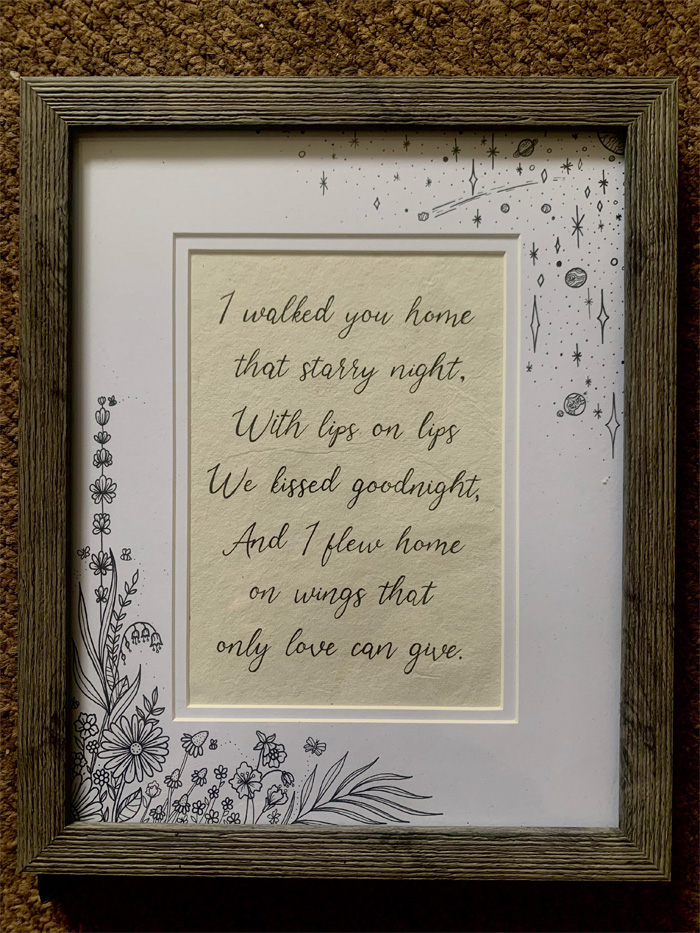 I walked you home
that starry night,
With lips on lips
We kissed goodnight,
And I flew home
on wings that
only love can give.